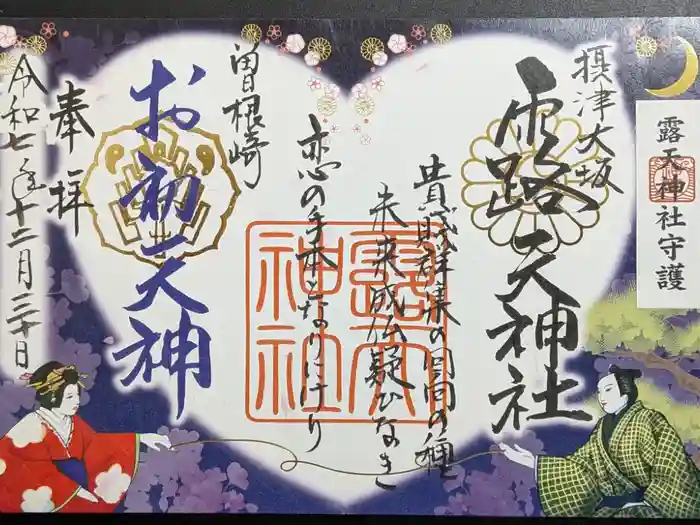 摂津大坂
露天神社
貴賤群集の回向の種
未来成仏疑ひなき
恋の手本となりにけり
曽根崎
お初天神
奉拝
令和七年十二月三十日
露天神社
露天神社守護